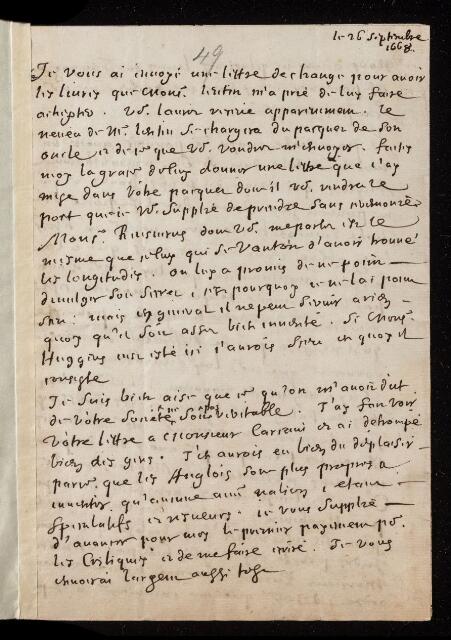 le 26 septembre
1668.
49
Je vous ai envoyé une lettre de change pour avoir
les livres que Mons. Iustin m'a prié de luy faire
achepter. Vs. l'aura receüe apparemment. Le
neveu de Mr. Iustin se chargera du pacquet de son
oncle et de ce que Vs. voudra m'envoyer. faites
moy la grace de luy donner une lettre que j'ay
mise dans vôtre pacquet dont il Vs. rendra le
port que ie Vs. supplie de prendre sans
Mons. dont Vs. me parlez est le
mesme que celuy qui se vantoit d'avoir trouvé
les longitudes. On luy a promis de ne point
divulguer son secret, c'est pourquoy ie ne l'ai point
sceu: mais en general il ne peut servir a rien
quoy qu'il soit assez bien inventé. Si Mons.
Huggens eust esté ici j'aurois sceu en quoy il
consiste
Je suis bien aise que ce qu'on m'avoit dit
de vôtre Société ne soit pas veritable. J'ay fait voir
vôtre lettre a Monsieur Carcavi et ai detrompé
bien des gens. J'en aurois eu bien du deplaisir
parce que les Anglois sont plus propres a
inventer qu'aucune autre nation, estant
speculatifs et resveurs. ie vous supplie
d'avancer pour moy le premier payement pr.
les Critiques et de me faire inscrire. Je vous
envoirai l'argent aussi tost